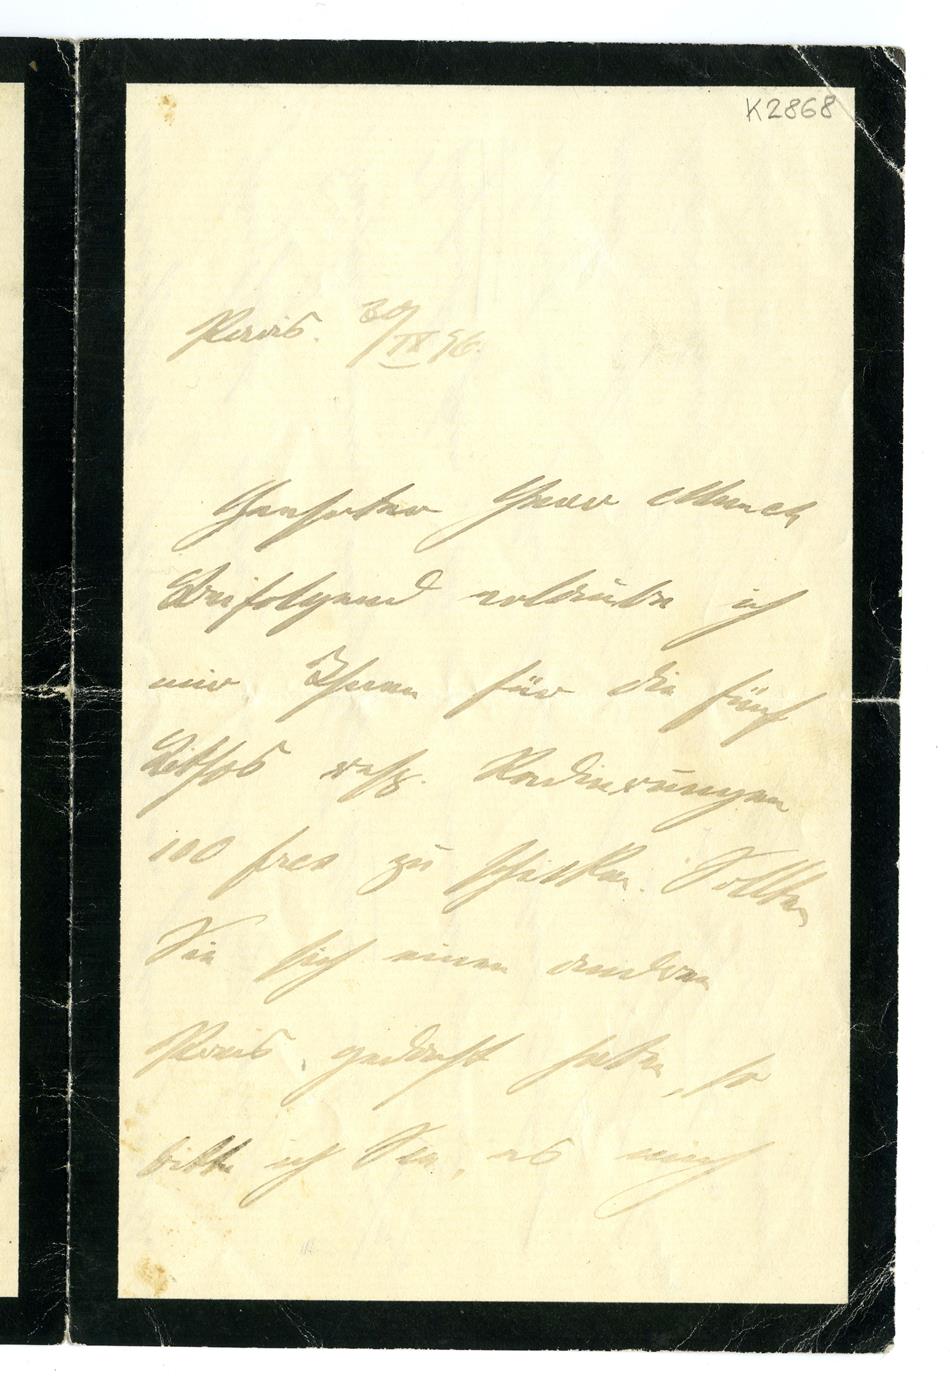 K2868
Paris. 30/IX 96.
Geehrter Herr Munch
Beifolgend erlaube ich
mir Ihnen für die fünf
Lithos resp. Radierungen
100 frcs zu schicken. Sollten
Sie sich einen andren
Preis gedacht haben, so
bitte ich Sie, es mich